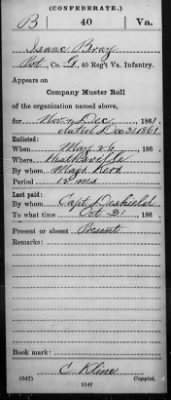 (CONFEDERATE.)
B 40 Va.
Isaac Bray
Pvt, Co. G, 40 Reg't Va. Infantry.
Appears on
Company Muster Roll
of the organization named above,
for Nov & Dec, 1861.
dated Dec 31, 1861
Enlisted:
When May 26, 186 .
Where Heathsville
By whom
Period 12 ms
Last paid:
By whom Capt.
To what time Oct. 31, 186 .
Present or absent Present
Remarks:
Book mark:
C. Kline
(642) Copyist.